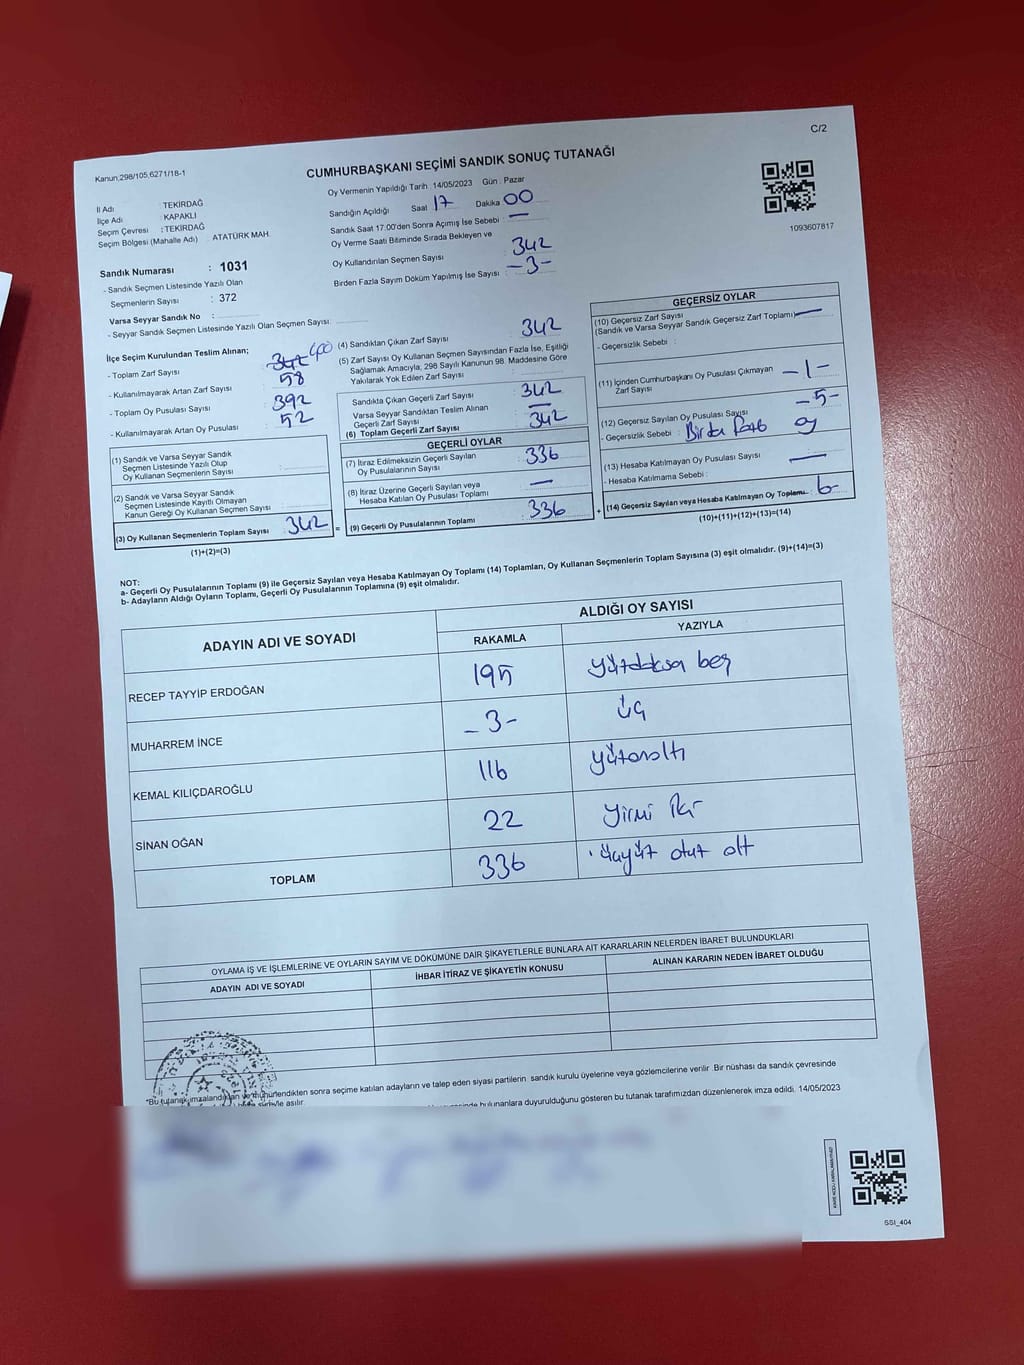 C/2
Kanun,298/105,6271/18-1
CUMHURBAŞKANI SEÇİMİ SANDIK SONUÇ TUTANAĞI
İl Adı : TEKİRDAĞ
İlçe Adı : KAPAKLI
Seçim Çevresi : TEKİRDAĞ
Seçim Bölgesi (Mahalle Adı) : ATATÜRK MAH.
Oy Vermenin Yapıldığı Tarih : 14/05/2023 Gün : Pazar
Sandığın Açıldığı Saat 17 Dakika 00
Sandık Saat 17.00'den Sonra Açımış İse Sebebi : —
Oy Verme Saati Bitiminde Sırada Bekleyen ve
Oy Kullandırılan Seçmen Sayısı 342
Birden Fazla Sayım Döküm Yapılmış İse Sayısı : -3-
1093607817
Sandık Numarası : 1031
- Sandık Seçmen Listesinde Yazılı Olan
Seçmenlerin Sayısı : 372
Varsa Seyyar Sandık No :
- Seyyar Sandık Seçmen Listesinde Yazılı Olan Seçmen Sayısı:
İlçe Seçim Kurulundan Teslim Alınan;
- Toplam Zarf Sayısı : 342 400
- Kullanılmayarak Artan Zarf Sayısı : 58
- Toplam Oy Pusulası Sayısı : 392
- Kullanılmayarak Artan Oy Pusulası : 52
(1) Sandık ve Varsa Seyyar Sandık
Seçmen Listesinde Yazılı Olup
Oy Kullanan Seçmenlerin Sayısı
(2) Sandık ve Varsa Seyyar Sandık
Seçmen Listesinde Kayıtlı Olmayan
Kanun Gereği Oy Kullanan Seçmen Sayısı :
(3) Oy Kullanan Seçmenlerin Toplam Sayısı : 342 =
(1)+(2)=(3)
(4) Sandıktan Çıkan Zarf Sayısı 342
(5) Zarf Sayısı Oy Kullanan Seçmen Sayısından Fazla İse, Eşitliği
Sağlamak Amacıyla, 298 Sayılı Kanunun 98. Maddesine Göre
Yakılarak Yok Edilen Zarf Sayısı :
Sandıkta Çıkan Geçerli Zarf Sayısı : 342
Varsa Seyyar Sandıktan Teslim Alınan
Geçerli Zarf Sayısı : —
(6) Toplam Geçerli Zarf Sayısı : 342
GEÇERLİ OYLAR
(7) İtiraz Edilmeksizin Geçerli Sayılan
Oy Pusulalarının Sayısı : 336
(8) İtiraz Üzerine Geçerli Sayılan veya
Hesaba Katılan Oy Pusulası Toplamı : —
(9) Geçerli Oy Pusulalarının Toplamı : 336 +
GEÇERSİZ OYLAR
(10) Geçersiz Zarf Sayısı
(Sandık ve Varsa Seyyar Sandık Geçersiz Zarf Toplamı) —
- Geçersizlik Sebebi :
(11) İçinden Cumhurbaşkanı Oy Pusulası Çıkmayan
Zarf Sayısı -1-
(12) Geçersiz Sayılan Oy Pusulası Sayısı -5-
- Geçersizlik Sebebi : oy
(13) Hesaba Katılmayan Oy Pusulası Sayısı : —
- Hesaba Katılmama Sebebi :
(14) Geçersiz Sayılan veya Hesaba Katılmayan Oy Toplamı : 6-
(10)+(11)+(12)+(13)=(14)
NOT:
a- Geçerli Oy Pusulalarının Toplamı (9) ile Geçersiz Sayılan veya Hesaba Katılmayan Oy Toplamı (14) Toplamları, Oy Kullanan Seçmenlerin Toplam Sayısına (3) eşit olmalıdır. (9)+(14)=(3)
b- Adayların Aldığı Oyların Toplamı, Geçerli Oy Pusulalarının Toplamına (9) eşit olmalıdır.
ADAYIN ADI VE SOYADI
ALDIĞI OY SAYISI
RAKAMLA YAZIYLA
RECEP TAYYİP ERDOĞAN 195 yüzdoksan beş
MUHARREM İNCE -3- üç
KEMAL KILIÇDAROĞLU 116 yüzonaltı
SİNAN OĞAN 22 yirmi iki
TOPLAM 336 üçyüz otuz altı
OYLAMA İŞ VE İŞLEMLERİNE VE OYLARIN SAYIM VE DÖKÜMÜNE DAİR ŞİKAYETLERLE BUNLARA AİT KARARLARIN NELERDEN İBARET BULUNDUKLARI
ADAYIN ADI VE SOYADI İHBAR İTİRAZ VE ŞİKAYETİN KONUSU ALINAN KARARIN NEDEN İBARET OLDUĞU
*Bu tutanak imzalandıktan ve mühürlendikten sonra seçime katılan adayların ve talep eden siyasi partilerin sandık kurulu üyelerine veya gözlemcilerine verilir. Bir nüshası da sandık çevresinde
asılır.
bulunanlara duyurulduğunu gösteren bu tutanak tarafımızdan düzenlenerek imza edildi. 14/05/2023
SSI_404